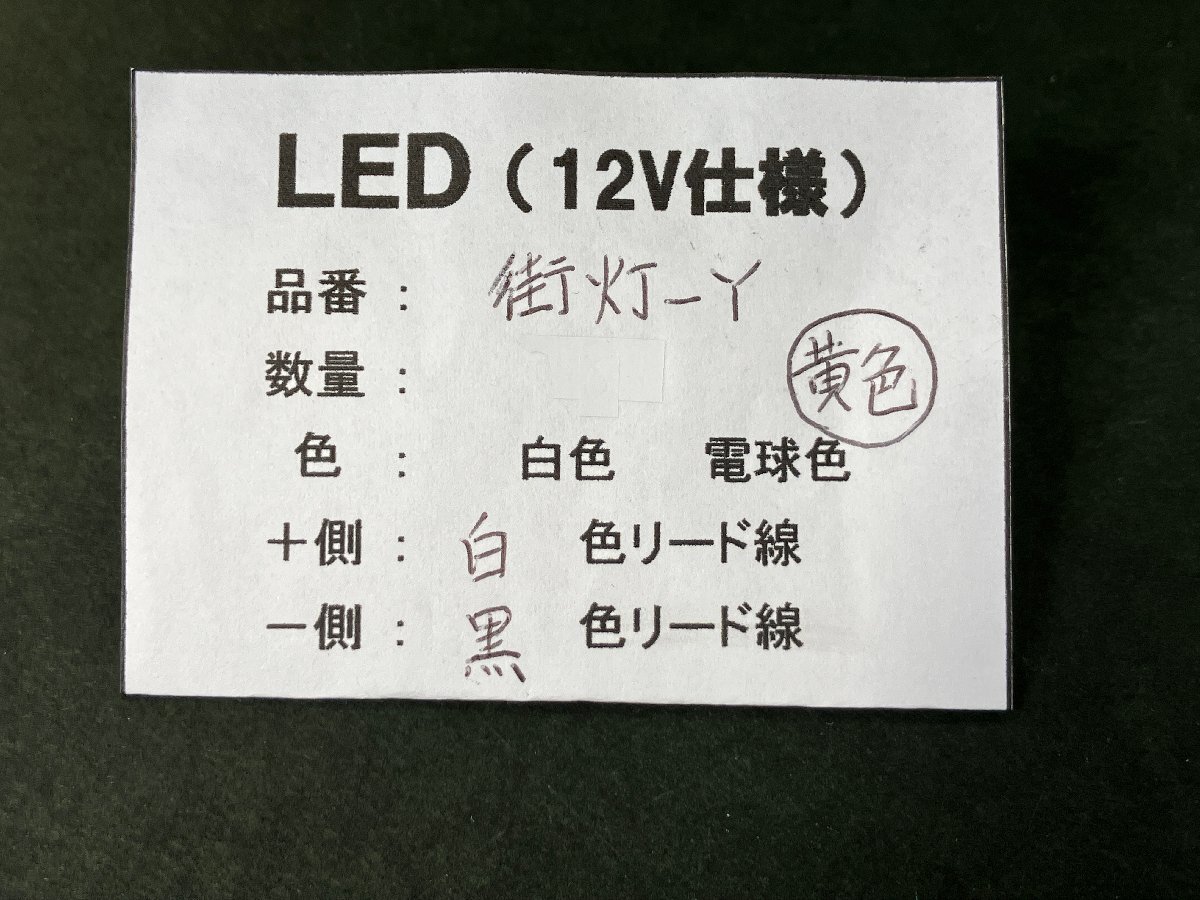 LED（12V仕様）
品番： 街灯-Y
数量：
黄色
色： 白色 電球色
＋側： 白 色リード線
－側： 黒 色リード線